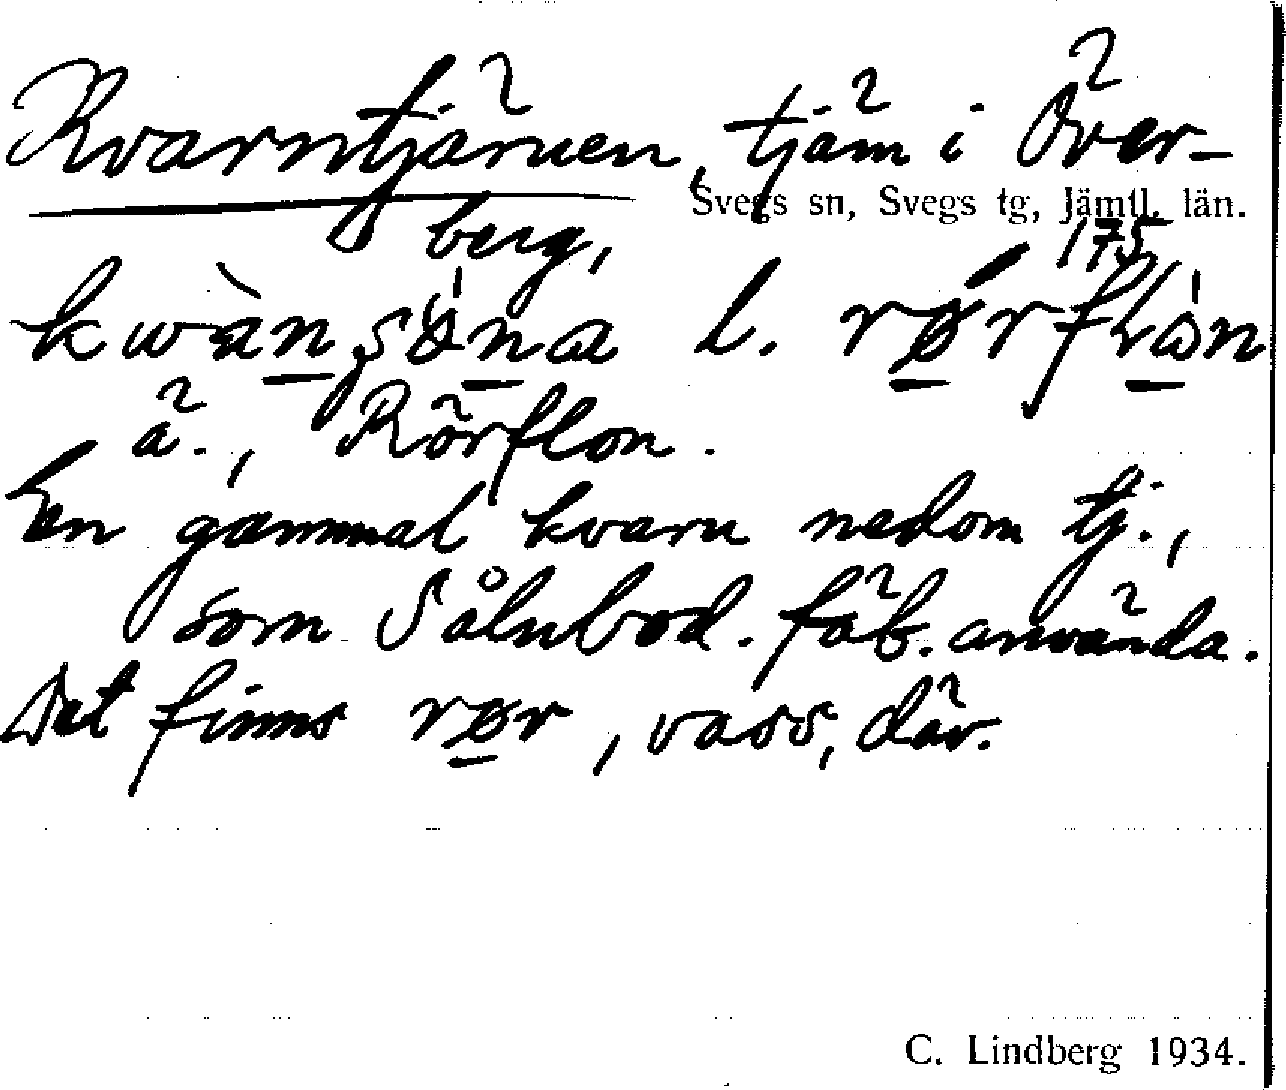 Kvarntjärnen, tjärn i Över-
Svegs sn, Svegs tg, Jämtl. län.
berg,
175
kwàn l. rørflòn
ä., Rörflon.
En gammal kvarn nedom tj.,
som Sålnbod. fäb. använda.
Det finns rør, vass, där.
C. Lindberg 1934.